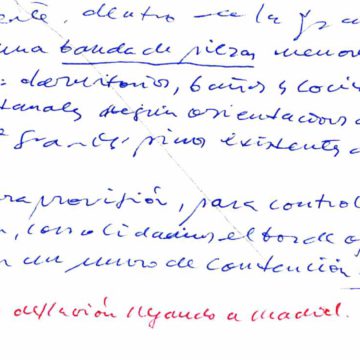 ente, dentro de la gra
una banda de piezas menor
: dormitorios, baños y coci
tanales según orientaciones
grandes pinos existentes
ra provisión, para control
n, consolidamos el borde o
n un muro de contención
deflación llegando a Madrid.